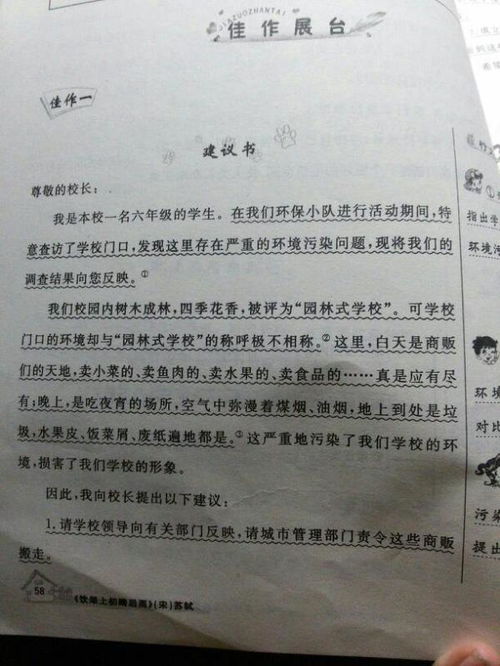 JIAZUOZHANTAI
佳作展台
佳作一
建议书
尊敬的校长:
我是本校一名六年级的学生。在我们环保小队进行活动期间,特
意查访了学校门口,发现这里存在严重的环境污染问题,现将我们的
调查结果向您反映。①
我们校园内树木成林,四季花香,被评为“园林式学校”。可学校
门口的环境却与“园林式学校”的称呼极不相称。②这里,白天是商贩
们的天地,卖小菜的、卖鱼肉的、卖水果的、卖食品的……真是应有尽
有;晚上,是吃夜宵的场所,空气中弥漫着煤烟、油烟,地上到处是垃
圾,水果皮、饭菜屑、废纸遍地都是。③这严重地污染了我们学校的环
境,损害了我们学校的形象。
因此,我向校长提出以下建议:
1.请学校领导向有关部门反映,请城市管理部门责令这些商贩
搬走。
58
《饮湖上初晴后雨》(宋)苏轼
①
指出学
环境污
环境
对比
污染
提出